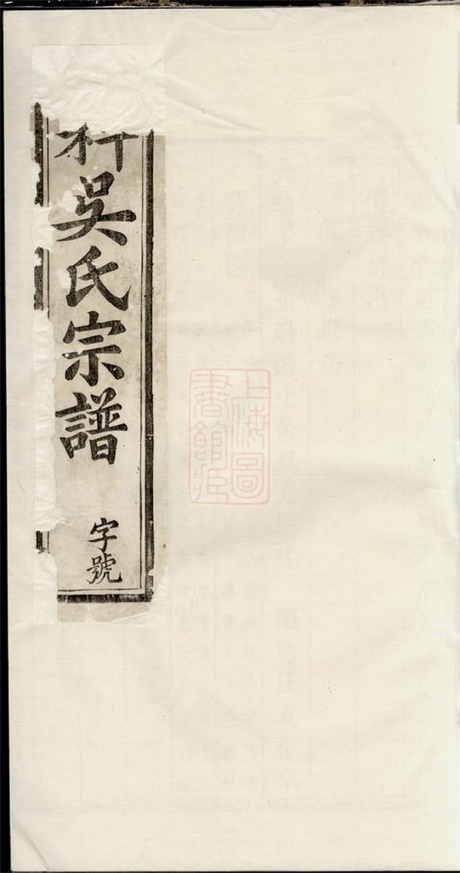 吳氏宗譜
字號
上海圖書館藏